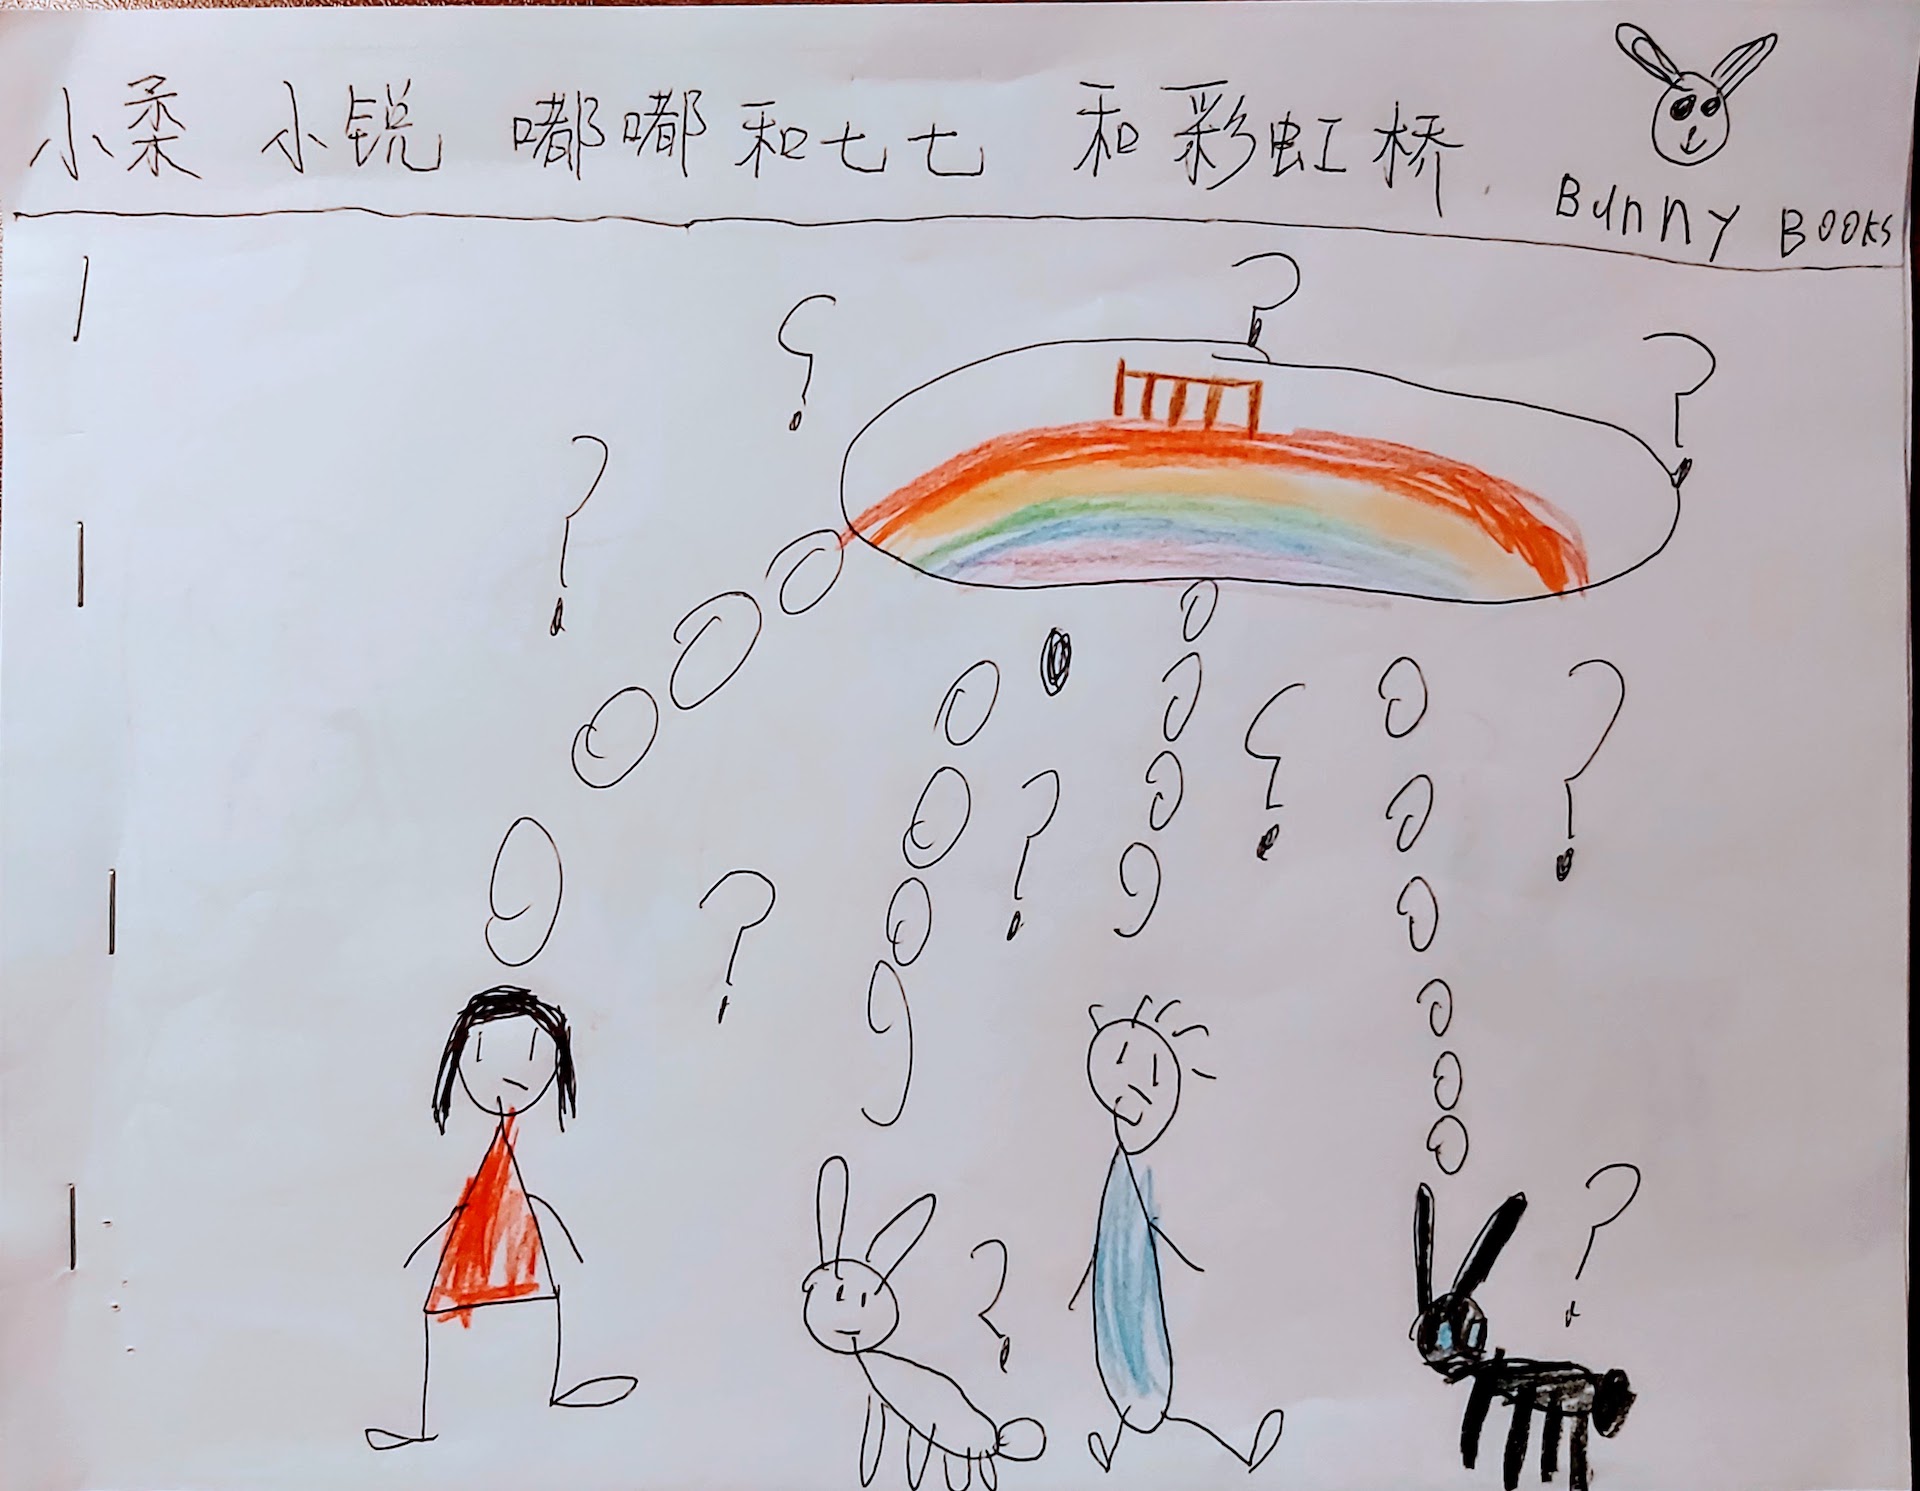 小柔 小锐 嘟嘟和七七 和彩虹桥
Bunny Books
1
? ? ? ? ? ? ? ? ? ? ?